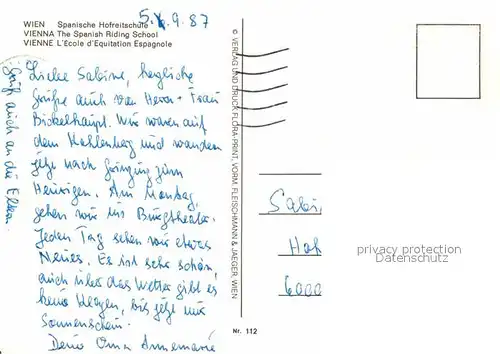 5.9.87
WIEN Spanische Hofreitschule
VIENNA The Spanish Riding School
VIENNE L'Ecole d'Equitation Espagnole
Liebe Sabine, herzliche
Grüße auch von Herrn + Frau
Bickelhaupt. Wir waren auf
dem Kahlenberg und wandern
jetzt nach Grinzing zum
Heurigen. Am Montag
gehen wir ins Burgtheater.
Jeden Tag sehen wir etwas
Neues. Es ist sehr schön,
auch über das Wetter gibt es
keine Klagen, bis jetzt nur
Sonnenschein.
Deine Oma Annemarie
Grüß auch an die Eltern.
© VERLAG UND DRUCK FLORA-PRINT, VORM. FLEISCHMANN & JAEGER, WIEN
Nr. 112
Sabi
Hof
6000
privacy protection
Datenschutz